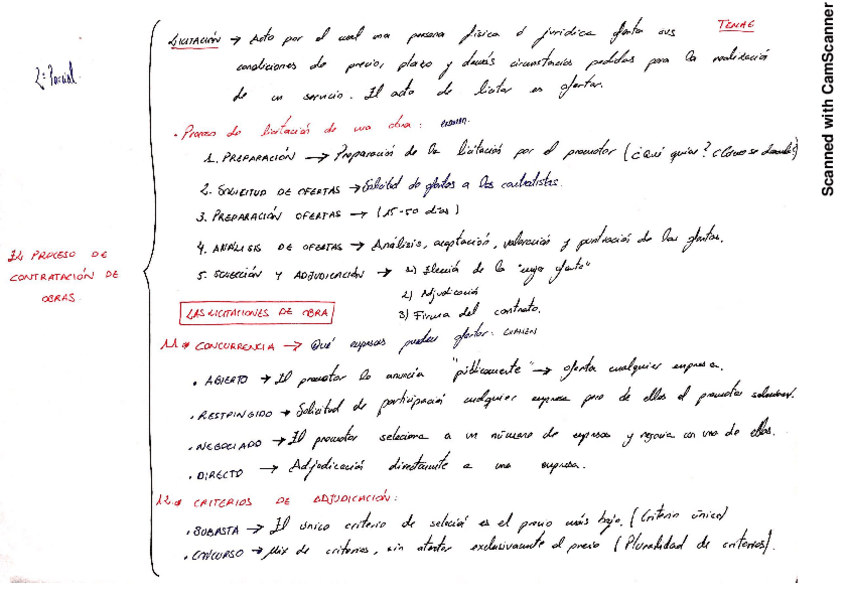 TEMA 6
2º Parcial
LICITACIÓN → Acto por el cual una persona física o jurídica oferta sus
condiciones de precio, plazo y demás circunstancias pedidas para la realización
de un servicio. El acto de licitar es ofertar.
• Proceso de licitación de una obra: EXAMEN.
1. PREPARACIÓN → Preparación de la licitación por el promotor (¿Qué quiere? ¿Cómo se
2. SOLICITUD DE OFERTAS → Solicitud de ofertas a los contratistas.
3. PREPARACIÓN OFERTAS → (15-50 días)
4. ANÁLISIS DE OFERTAS → Análisis, aceptación, valoración y puntuación de las ofertas.
5. SELECCIÓN Y ADJUDICACIÓN → 1) Elección de la "mejor oferta"
2) Adjudicación
3) Firma del contrato.
PROCESO DE
CONTRATACIÓN DE
OBRAS
LAS LICITACIONES DE OBRA
CONCURRENCIA → Qué empresas pueden ofertar: EXAMEN
• ABIERTO → El promotor lo anuncia "públicamente" → oferta cualquier empresa.
• RESTRINGIDO → Solicitud de participación cualquier empresa pero de ellas el promotor
• NEGOCIADO → El promotor selecciona a un número de empresas y negocia con una de ellas.
• DIRECTO → Adjudicación directamente a una empresa.
CRITERIOS DE ADJUDICACIÓN:
• SUBASTA → El único criterio de selección es el precio más bajo. (Criterio único)
• CONCURSO → Mix de criterios, sin atender exclusivamente al precio (Pluralidad de criterios).
Scanned with CamScanner